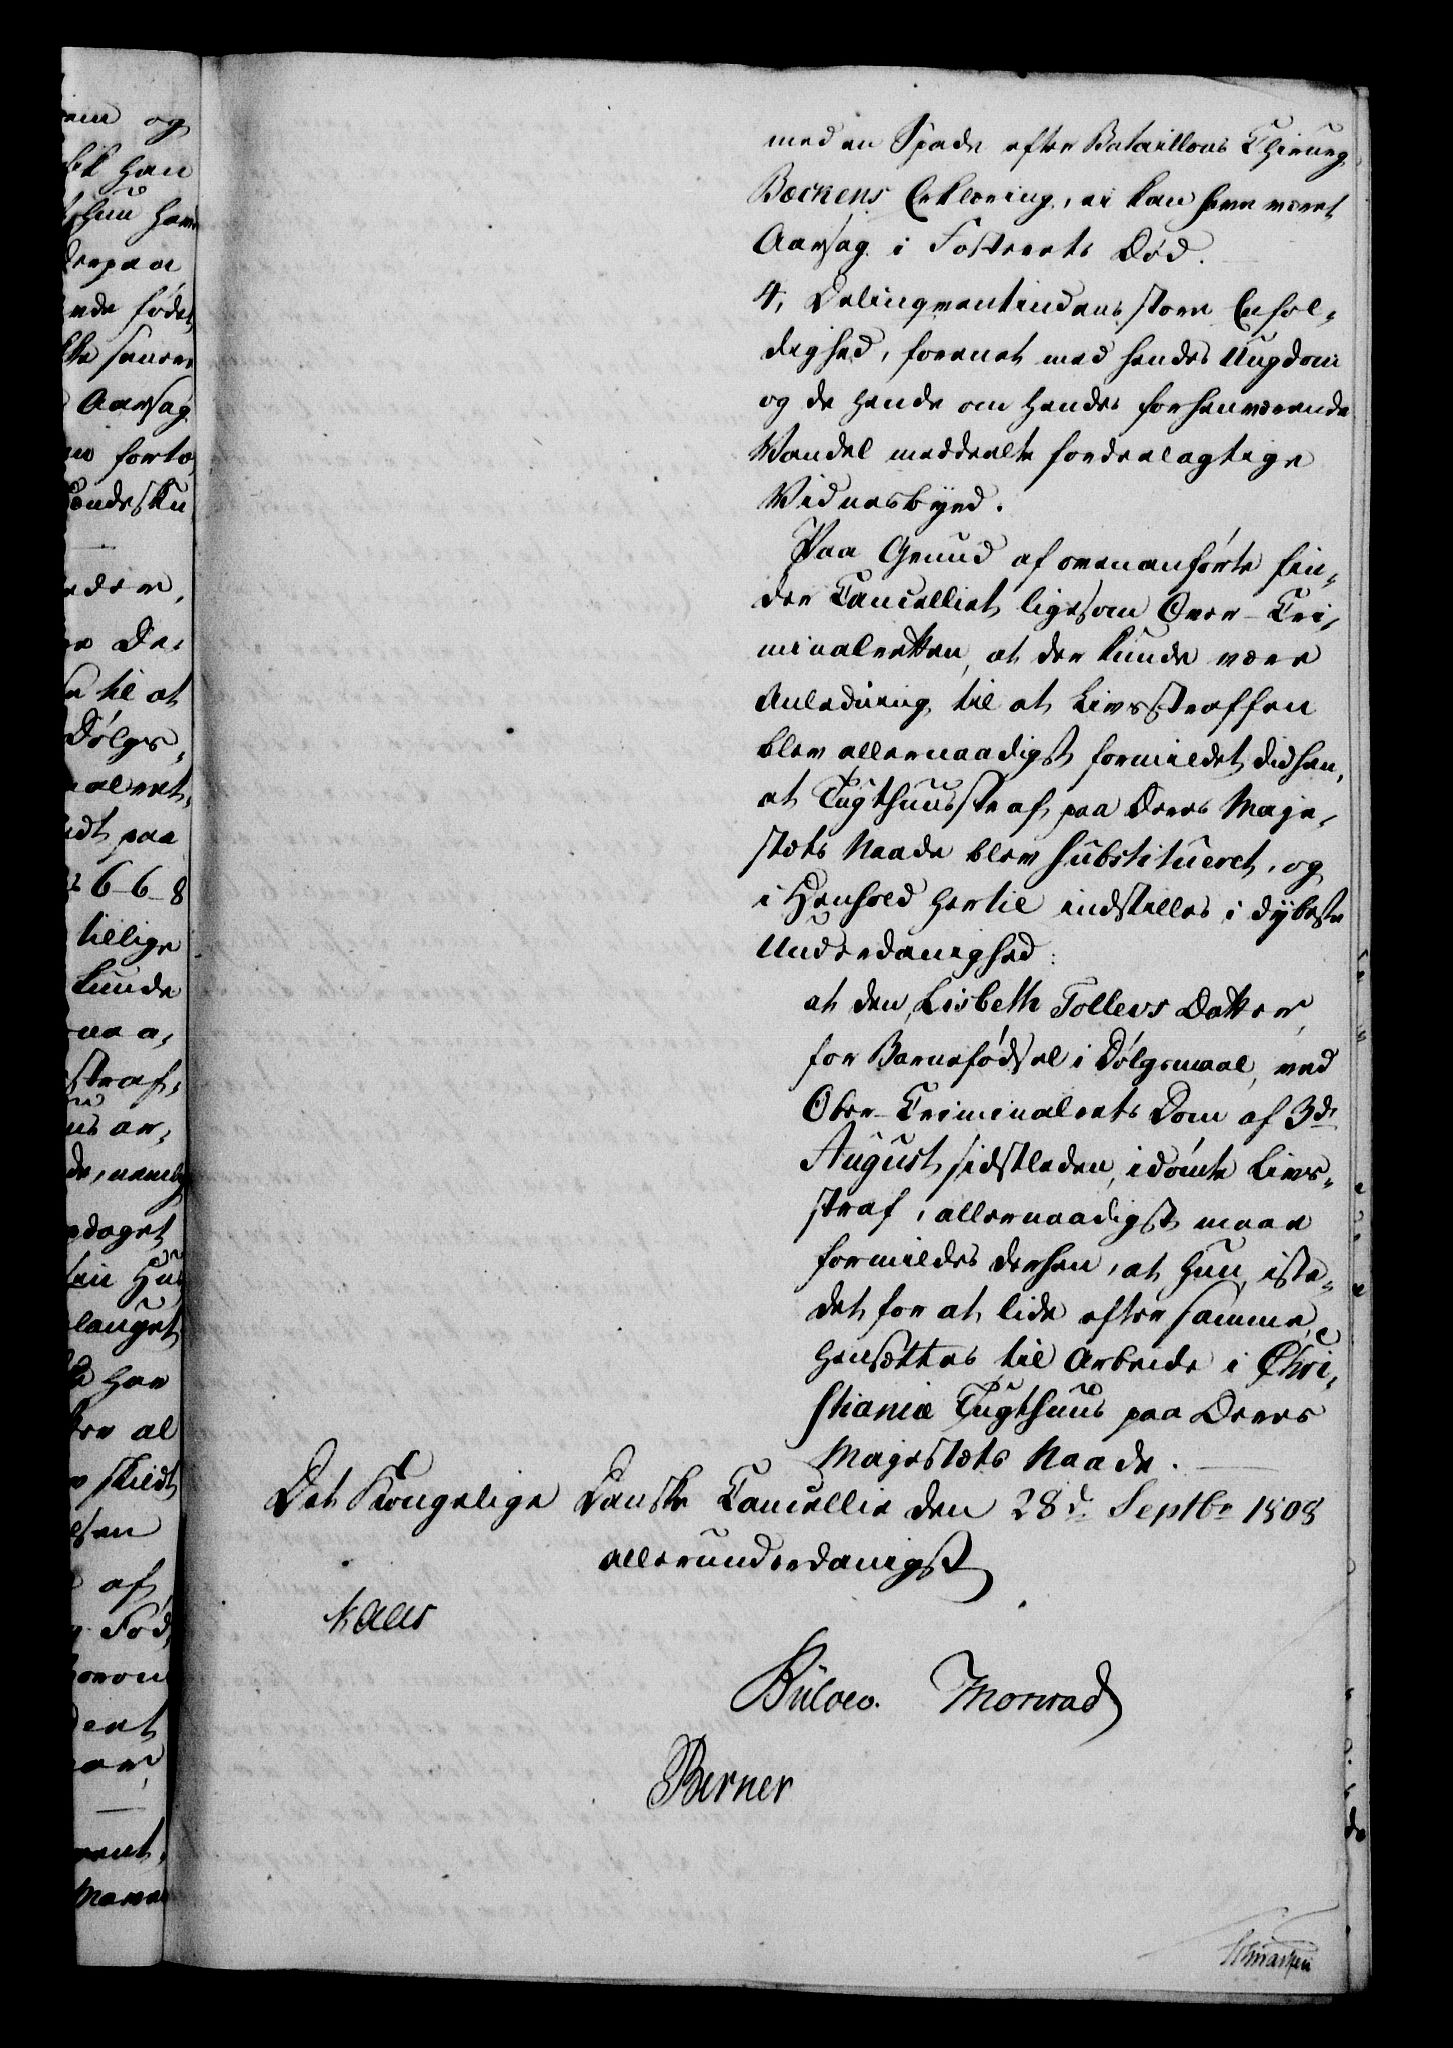 med en Spade efter Bataillons Chirurg
Bœckens Erklæring, ei kan have været
Aarsag i Fosterets Død.
4, Delinqventindens store Enfol-
dighed, forenet med hendes Ungdom
og de hende om hendes forhenværende
Vandel meddeelte fordeelagtige
Vidnesbyrd.
Paa Grund af ovenanførte fin-
der Cancelliet, ligesom Over-Cri-
minalretten, at der kunde være
Anledning til at Livsstraffen
blev allernaadigst formildet didhen,
at Tugthuusstraf paa Deres Maje-
stæts Naade blev substitueret, og
i Henhold hertil indstilles i dybeste
Underdanighed:
at den, Lisbeth Tollevs Datter,
for Barnefødsel i Dølgsmaal, ved
Ober-Criminalrets Dom af 3de
August sidstleden, idømte Livs-
straf, allernaadigst maae
formildes derhen, at hun, iste-
det for at lide efter samme,
hensættes til Arbeide i Chri-
stiania Tugthuus paa Deres
Majestæts Naade.
Det Kongelige Danske Cancellie den 28de Septbr 1808
allerunderdanigst
Kaas
Bülow. Monrad
Berner
em og
han
derpaa
fødes
Aarsag
der,
De-
til at
Dølgs-
alret-
paa
6-6-8
tillige
kunde
straf-
daget
langet
har
al
skildt
af
Fød-